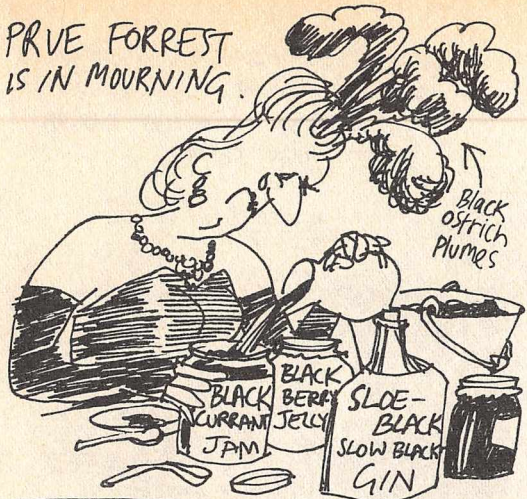 PRUE FORREST
IS IN MOURNING.
Black
Ostrich
Plumes
BLACK
CURRANT
JAM
BLACK
BERRY
JELLY
SLOE-
BLACK
SLOW BLACK
GIN